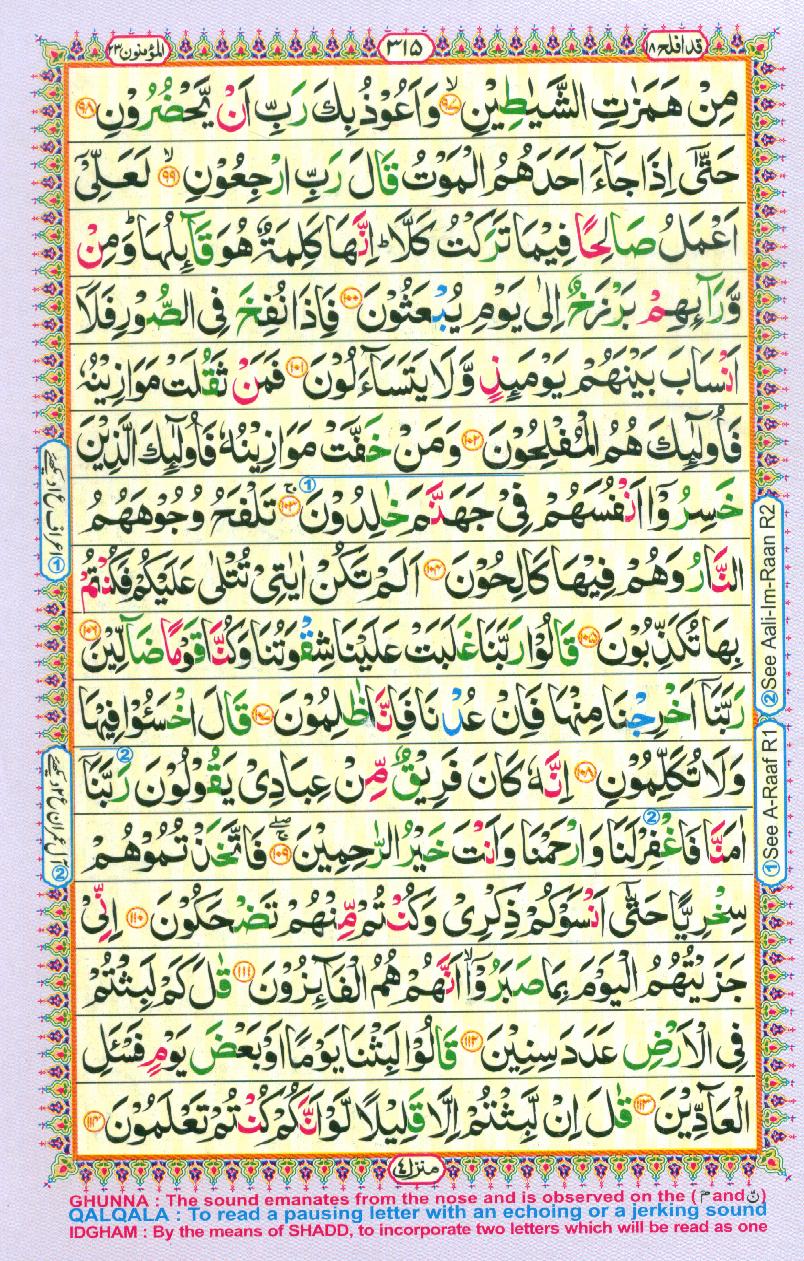 قد افلح ١٨
٣١٥
المؤمنون ٢٣
مِنْ هَمَزٰتِ الشَّيٰطِيْنِ ۙ‏﴿۹۷﴾ وَاَعُوْذُ بِكَ رَبِّ اَنْ يَّحْضُرُوْنِ ﴿۹۸﴾
حَتّٰٓى اِذَا جَآءَ اَحَدَهُمُ الْمَوْتُ قَالَ رَبِّ ارْجِعُوْنِ ۙ﴿۹۹﴾ لَعَلِّىْۤ
اَعْمَلُ صَالِحًا فِيْمَا تَرَكْتُ كَلَّا ؕ اِنَّهَا كَلِمَةٌ هُوَ قَآئِلُهَا ؕ وَمِنْ
وَّرَآئِهِمْ بَرْزَخٌ اِلٰى يَوْمِ يُبْعَثُوْنَ ﴿۱۰۰﴾ فَاِذَا نُفِخَ فِى الصُّوْرِ فَلَاۤ
اَنْسَابَ بَيْنَهُمْ يَوْمَئِذٍ وَّلَا يَتَسَآءَلُوْنَ ﴿۱۰۱﴾ فَمَنْ ثَقُلَتْ مَوَازِيْنُهٗ
فَاُولٰٓئِكَ هُمُ الْمُفْلِحُوْنَ ﴿۱۰۲﴾ وَمَنْ خَفَّتْ مَوَازِيْنُهٗ فَاُولٰٓئِكَ الَّذِيْنَ
خَسِرُوْۤا اَنْفُسَهُمْ فِىْ جَهَنَّمَ خٰلِدُوْنَ ①ۚ﴿۱۰۳﴾ تَلْفَحُ وُجُوْهَهُمُ
النَّارُ وَهُمْ فِيْهَا كَالِحُوْنَ ﴿۱۰۴﴾ اَلَمْ تَكُنْ اٰيٰتِىْ تُتْلٰى عَلَيْكُمْ فَكُنْتُمْ
بِهَا تُكَذِّبُوْنَ ﴿۱۰۵﴾ قَالُوْا رَبَّنَا غَلَبَتْ عَلَيْنَا شِقْوَتُنَا وَكُنَّا قَوْمًا ضَآلِّيْنَ ﴿۱۰۶﴾
رَبَّنَاۤ اَخْرِجْنَا مِنْهَا فَاِنْ عُدْنَا فَاِنَّا ظٰلِمُوْنَ ﴿۱۰۷﴾ قَالَ اخْسَئُوْا فِيْهَا
وَلَا تُكَلِّمُوْنِ ﴿۱۰۸﴾ اِنَّهٗ كَانَ فَرِيْقٌ مِّنْ عِبَادِىْ يَقُوْلُوْنَ ② رَبَّنَاۤ
اٰمَنَّا فَاغْفِرْ لَنَا ② وَارْحَمْنَا وَاَنْتَ خَيْرُ الرّٰحِمِيْنَ ۖۚ﴿۱۰۹﴾ فَاتَّخَذْتُمُوْهُمْ
سِخْرِيًّا حَتّٰٓى اَنْسَوْكُمْ ذِكْرِىْ وَكُنْتُمْ مِّنْهُمْ تَضْحَكُوْنَ ﴿۱۱۰﴾ اِنِّىْ
جَزَيْتُهُمُ الْيَوْمَ بِمَا صَبَرُوْۤا ۙ اَنَّهُمْ هُمُ الْفَآئِزُوْنَ ﴿۱۱۱﴾ قٰلَ كَمْ لَبِثْتُمْ
فِى الْاَرْضِ عَدَدَ سِنِيْنَ ﴿۱۱۲﴾ قَالُوْا لَبِثْنَا يَوْمًا اَوْ بَعْضَ يَوْمٍ فَسْئَلِ
الْعَآدِّيْنَ ﴿۱۱۳﴾ قٰلَ اِنْ لَّبِثْتُمْ اِلَّا قَلِيْلًا لَّوْ اَنَّكُمْ كُنْتُمْ تَعْلَمُوْنَ ﴿۱۱۴﴾
② See Aali-Im-Raan R2
① See A-Raaf R1
منزل ٤
GHUNNA : The sound emanates from the nose and is observed on the ( مّ and نّ )
QALQALA : To read a pausing letter with an echoing or a jerking sound
IDGHAM : By the means of SHADD, to incorporate two letters which will be read as one